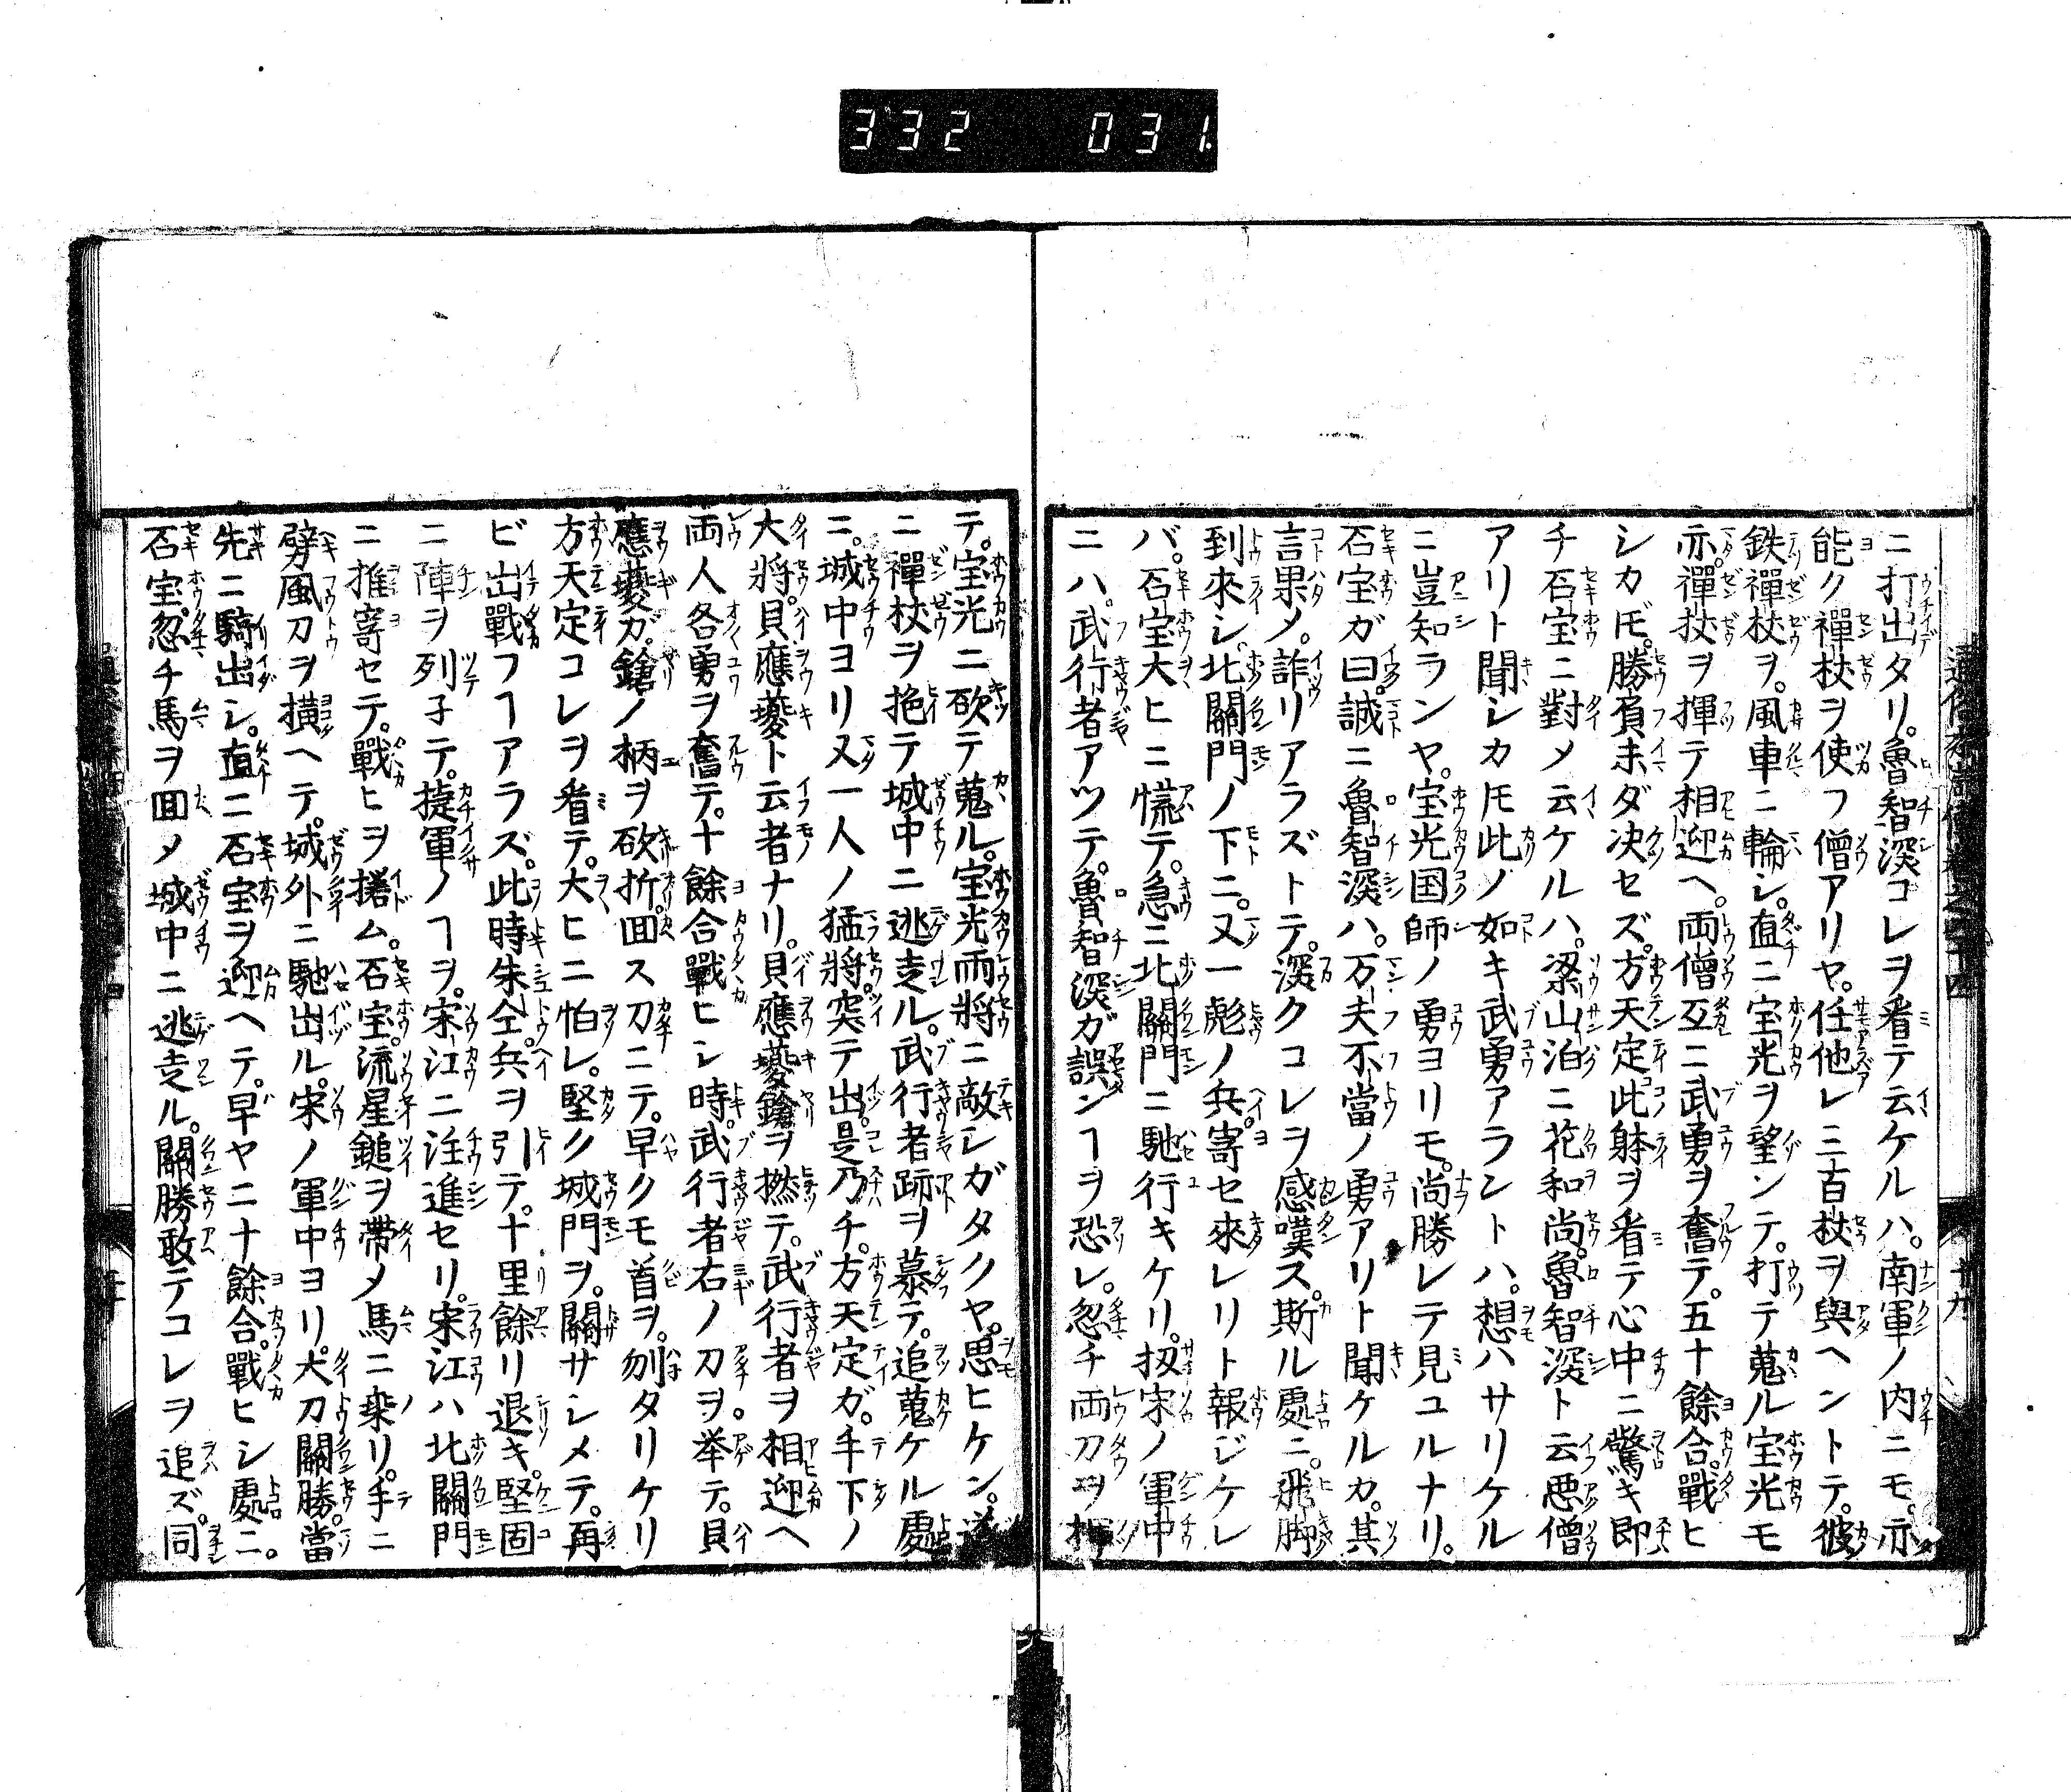 332 031.
ニ打出タリ。魯智深コレヲ看テ云ケルハ。南軍ノ内ニモ。亦
能ク禪杖ヲ使フ僧アリヤ。任他レ三百杖ヲ與ヘントテ。彼
鉄禪杖ヲ。風車ニ輪シ。直ニ宝光ヲ望ンテ。打テ蒐ル宝光モ
亦。禪杖ヲ揮テ相迎ヘ。両僧互ニ武勇ヲ奮テ。五十餘合。戰ヒ
シカ𪜈。勝負未ダ决セズ。方天定此躰ヲ看テ心中ニ驚キ即
チ石宝ニ對メ云ケルハ。梁山泊ニ花和尚。魯智深ト云悪僧
アリト聞シカ𪜈此ノ如キ武勇アラントハ。想ハサリケル
ニ豈知ランヤ。宝光国師ノ勇ヨリモ。尚勝レテ見ユルナリ。
石宝ガ曰。誠ニ魯智深ハ。万夫不當ノ勇アリト聞ケルカ。其
言果メ。詐リアラズトテ。深クコレヲ感嘆ス。斯ル處ニ。飛脚
到來シ。北關門ノ下ニ。又一彪ノ兵。寄セ來レリト報ジケレ
バ。石宝大ヒニ慌テ。急ニ北關門ニ馳行キケリ。扨宋ノ軍中
ニハ。武行者アツテ。魯智深ガ誤ンヿヲ恐レ。忽チ両刀ヲ揮
テ。宝光ニ欲テ蒐ル。宝光両將ニ敵シガタクヤ。思ヒケン。遂
ニ禪杖ヲ抱テ城中ニ逃走ル。武行者跡ヲ慕テ。追蒐ケル處
ニ。城中ヨリ又一人ノ猛將。突テ出。是乃チ。方天定ガ。手下ノ
大將。貝應夔ト云者ナリ。貝應夔鎗ヲ撚テ。武行者ヲ相迎ヘ
両人各勇ヲ奮テ。十餘合戰ヒシ時。武行者右ノ刀ヲ。挙テ。貝
應夔ガ。鎗ノ柄ヲ砍折回ス刀ニテ。早クモ首ヲ。刎タリケリ
方天定コレヲ看テ。大ヒニ怕レ。堅ク城門ヲ。關サシメテ。再
ビ出戰フヿアラズ。此時朱仝。兵ヲ引テ。十里餘リ退キ。堅固
ニ陣ヲ列子テ。捷軍ノヿヲ。宋江ニ注進セリ。宋江ハ北關門
ニ推寄セテ。戰ヒヲ搦ム。石宝。流星鎚ヲ帶メ馬ニ乗リ。手ニ
劈風刀ヲ横ヘテ。城外ニ馳出ル。宋ノ軍中ヨリ。大刀關勝。當
先ニ騎出シ。直ニ石宝ヲ迎ヘテ。早ヤ二十餘合。戰ヒシ處ニ。
石宝。忽チ馬ヲ回メ城中ニ逃走ル。關勝敢テコレヲ追ズ。同